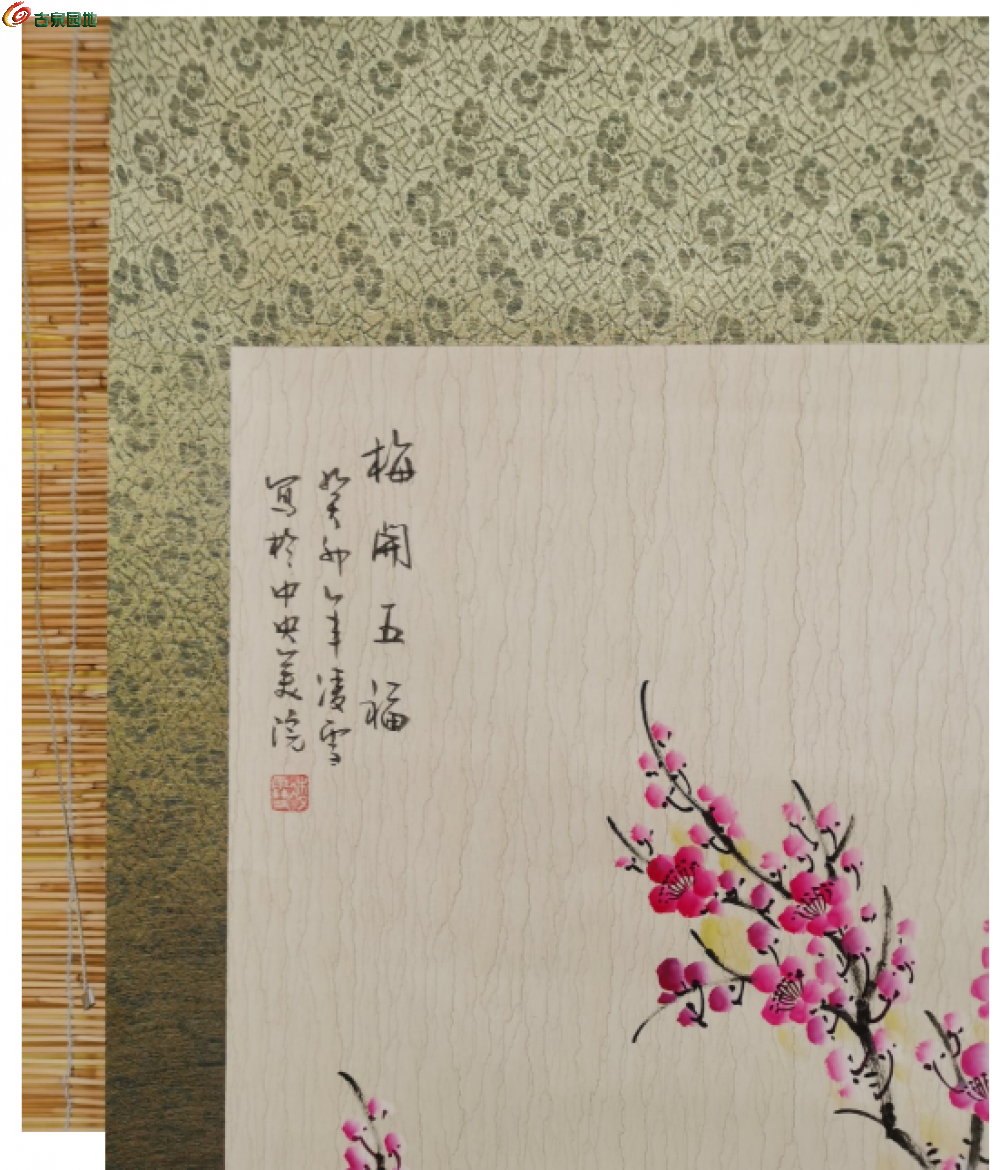 古泉园地
梅開五福
癸卯年凌雪
写於中央美院